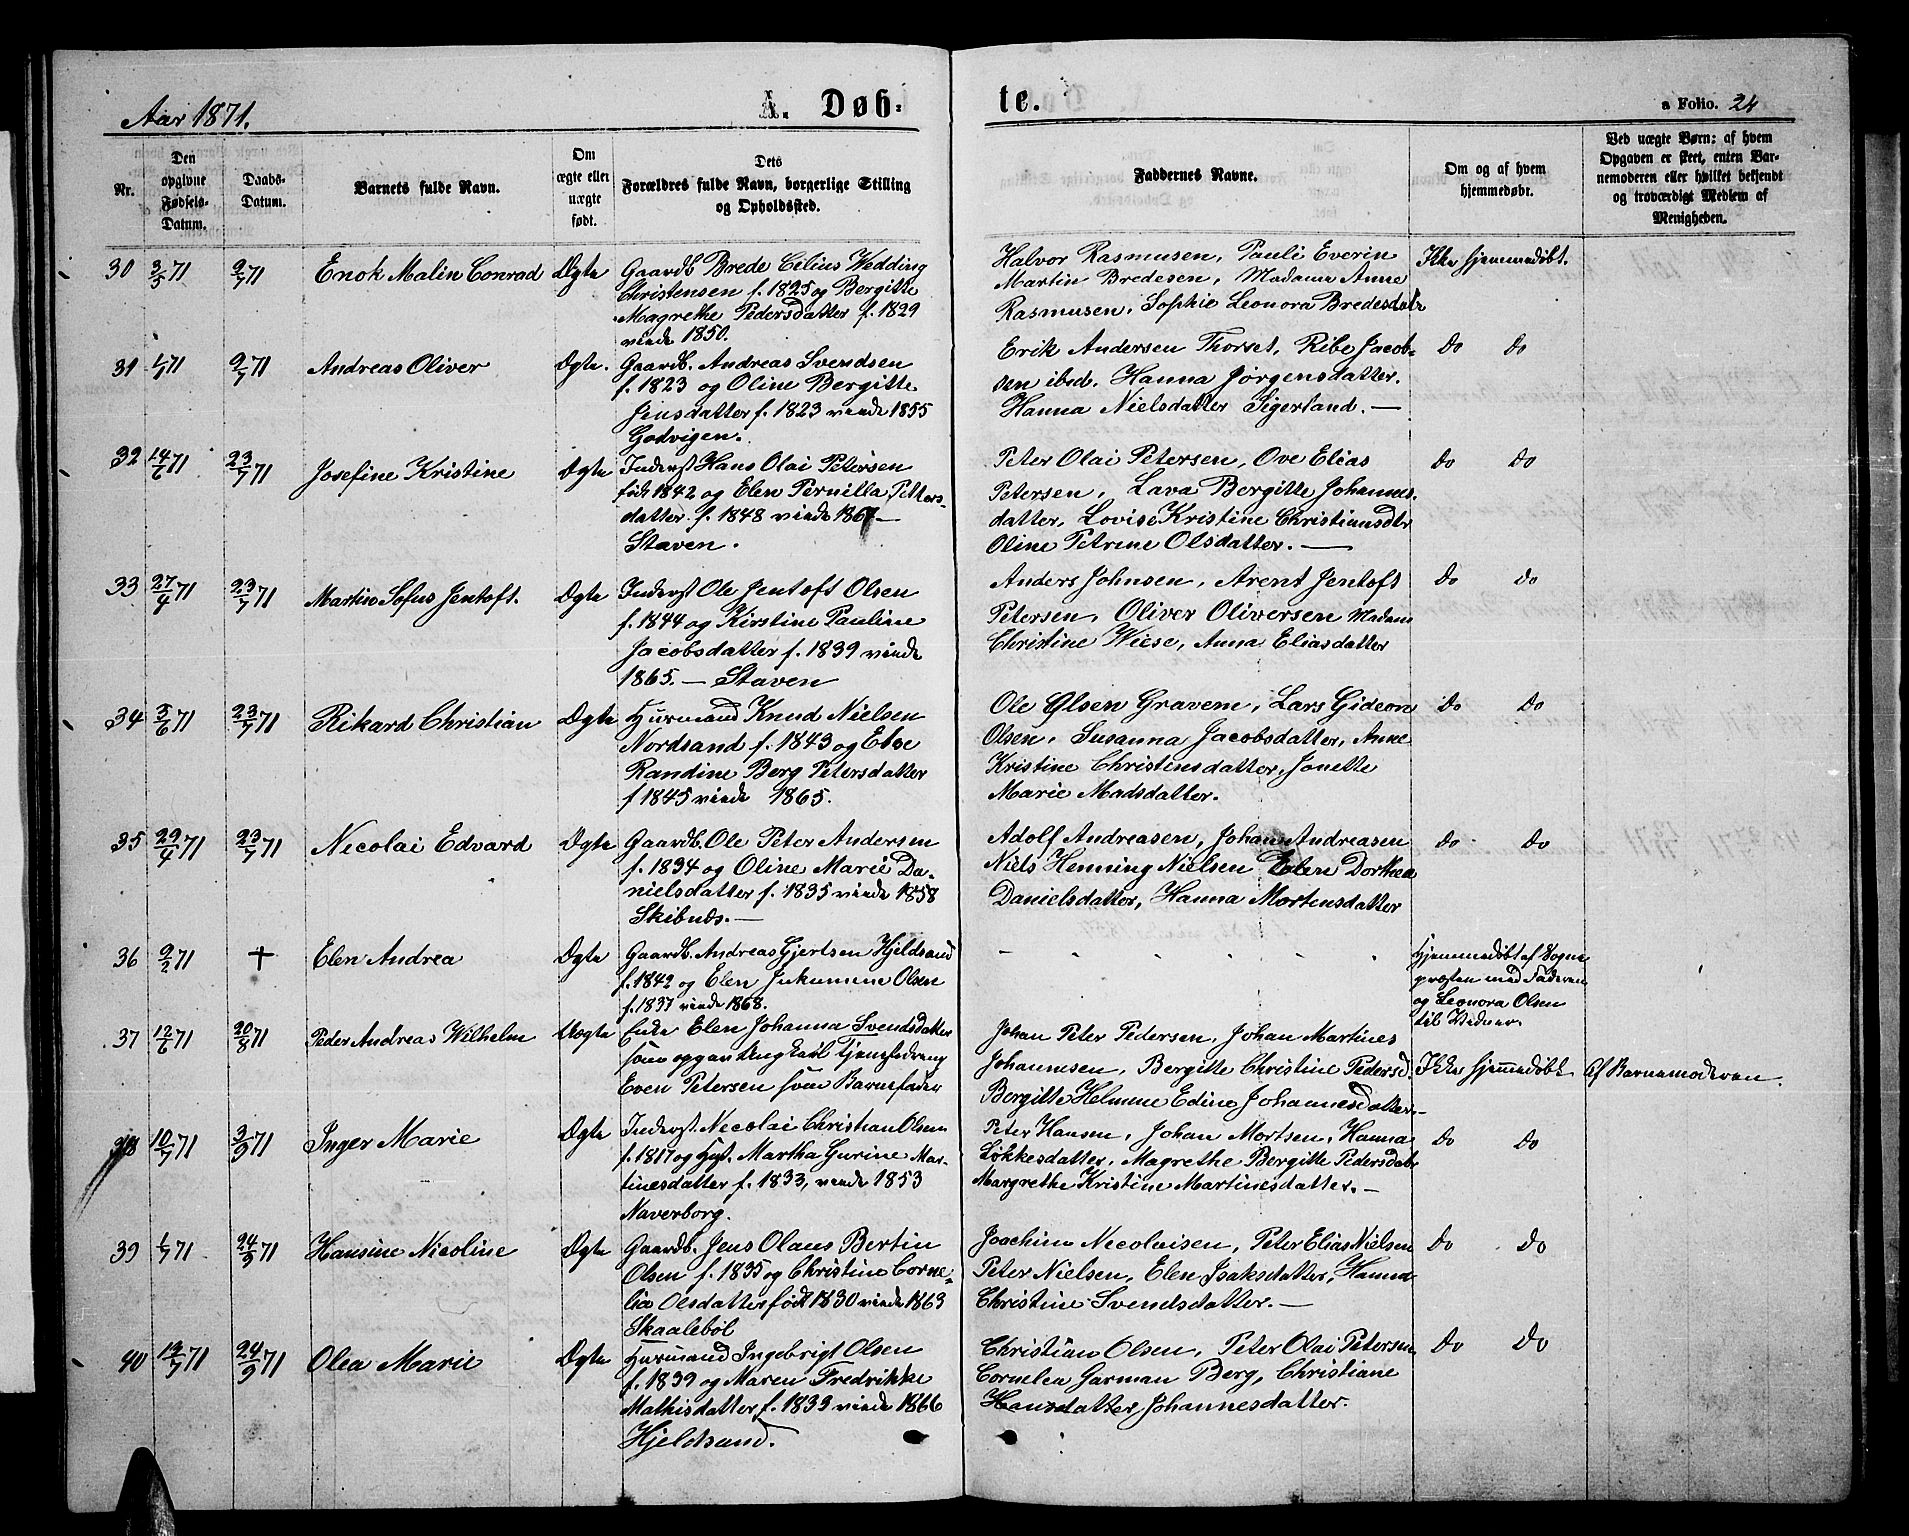 Aar 1871.
A. Døb-
te.
a Folio. 24
Nr.
Den opgivne Fødsels-Datum.
Daabs-Datum.
Barnets fulde Navn.
Om ægte eller uægte født.
Dets Forældres fulde Navn, borgerlige Stilling og Opholdssted.
Faddernes Navne.
Om og af hvem hjemmedøbt.
Ved uægte Børn; af hvem Opgaven er skeet, enten Barnemoderen eller hvilket bekjendt og troværdigt Medlem af Menigheden.
30 3/5 71 9/7 71 Enok Malin Conrad Ægte
Gaardb Brede Cilius Wedding
Christensen f. 1825 og Bergitte
Magrethe Pedersdatter f. 1829
viede 1850.
Halvor Rasmusen, Pauli Everin
Martin Bredesen, Madame Anne
Rasmusen, Sophie Leonora Bredesdatr
Ikke hjemmedøbt.
31 1/7 71 9/7 71 Andreas Oliver Ægte.
Gaardb. Andreas Svendsen
f. 1823 og Oline Bergitte
Jensdatter f. 1823 viede 1855
Godvigen.
Erik Andersen Thorset, Ribe Jacob-
sen ibed. Hanna Jørgensdatter.
Hanna Nielsdatter Sigerland. —
Do Do
32 14/6 71 23/7 71 Josefine Kristine Ægte
Inderst Hans Olai Petersen
født 1842 og Elen Pernilla Petters-
datter f. 1848 viede 1867 —
Staven.
Peter Olai Petersen, Ove Elias
Petersen, Lava Bergitte Johannes-
datter, Lovise Kristine Christiansdtr
Oline Petrine Olsdatter. —
Do Do
33 27/4 71 23/7 71 Martin Sofus Jentoft. Ægte
Inderst Ole Jentoft Olsen
f. 1844 og Kirstine Pauline
Jacobsdatter f. 1839 viede
1865. — Staven
Anders Johnsen, Arent Jentoft
Petersen, Oliver Oliversen Madam
Christine Wiese, Anna Eliasdatter
Do Do
34 5/6 71 23/7 71 Rikard Christian Ægte
Huusmand Knud Nielsen
Nordsand f. 1843 og Else
Randine Berg Petersdatter
f 1845 viede 1865.
Ole Olsen Gravene, Lars Gideon
Olsen, Susanna Jacobsdatter, Anne
Kristine Christensdatter, Jonette
Marie Madsdatter.
Do Do
35 29/4 71 23/7 71 Necolai Edvard Ægte
Gaardb. Ole Peter Andersen
f. 1834 og Oline Marie Da-
nielsdatter f. 1835 viede 1858
Skibnæs. —
Adolf Andreasen, Johan Andreasen
Niels Henning Nielsen Elen Dorthea
Danielsdatter, Hanna Mortensdatter
Do Do
36 9/2 71 + Elen Andrea Ægte
Gaardb. Andreas Gjertsen Hjeldsand
f. 1842 og Elen Jukumine Olsen
f. 1837 viede 1868.
Hjemmedøbt af Sogne
præsten med Faderen
og Leonora Olsen
til Vidner.
37 12/6 71 20/8 71 Peder Andreas Wilhelm Uægte
Enke Elen Johanna Svendsdatter
som opgav Ungkarl Tjenestedreng
Even Petersen som Barnefader
Johan Peter Pedersen, Johan Martines
Johannesen, Bergitte Christine Pedersd.
Bergitte Helmine Edine Johannesdatter.
Ikke hjemmedøbt
Af Barnemoderen.
38 10/7 71 3/9 71 Inger Marie Ægte
Inderst. Necolai Christian Olsen
f. 1817 og Hust. Martha Gurine Mar-
tinesdatter f. 1833, viede 1853
Naverborg.
Peter Hansen, Johan Mortsen, Hanna
Løkkesdatter, Magrethe Bergitte Pedersdatr
Margrethe Kristine Martinesdatter. —
Do Do
39 1/7 71 24/9 71 Hansine Nicoline Ægte
Gaardb. Jens Olaus Bertin
Olsen f. 1835 og Christine Corne-
lia Olsdatter født 1830 viede 1863
Skaalebøl
Joachim Necolaisen, Peter Elias Nielsen
Peter Nielsen, Elen Isaksdatter, Hanna
Christine Svendsdatter. —
Do Do
40 19/7 71 24/9 71 Olea Marie Ægte
Huusmand Ingebrigt Olsen
f. 1839 og Maren Fredrikke
Mathisdatter f. 1839 viede 1866
Hjeldsand.
Christian Olsen, Peter Olai Petersen
Cornelea Garman Berg, Christiane
Hansdatter Johannesdatter.
Do Do